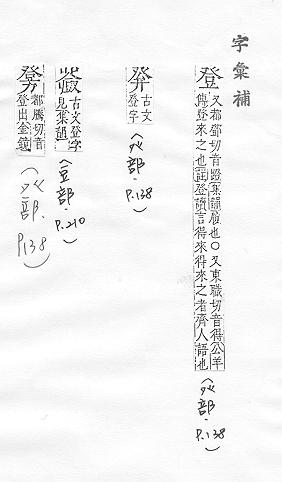 字彙補
登 又都鄧切音蹬集韻履也○又東職切音得公羊
傳登來之也註登讀言得來得來之者齊人語也
(癶部.P.138)
古文
登字
(癶部.P.138)
古文登字
見集韻
(豆部.P.210)
都騰切音
登出金鏡
(癶部.P138)